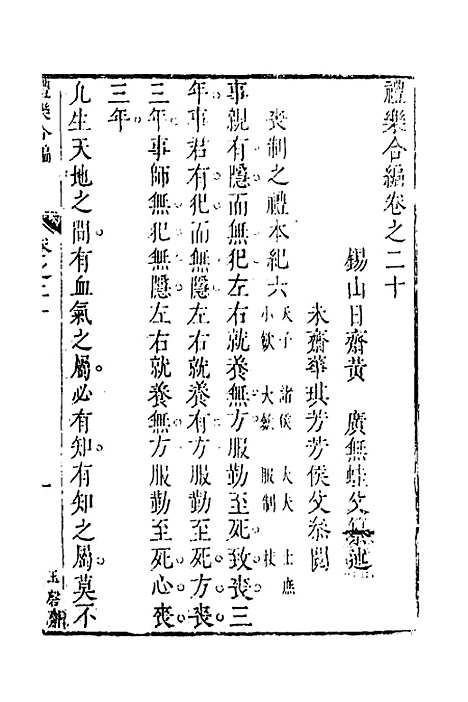 禮樂合編卷之二十
錫山日齋黃　廣無蛙父纂述
未齋華琪芳芳侯父叅閱
喪制之禮本紀六　天子　諸侯　大夫　士庶
小歛　大歛　服制
事親有隱而無犯左右就養無方服勤至死致喪三
年事君有犯而無隱左右就養有方服勤至死方喪
三年事師無犯無隱左右就養無方服勤至死心喪
三年
凡生天地之間有血氣之屬必有知有知之屬莫不
禮樂合編　卷之二十　一